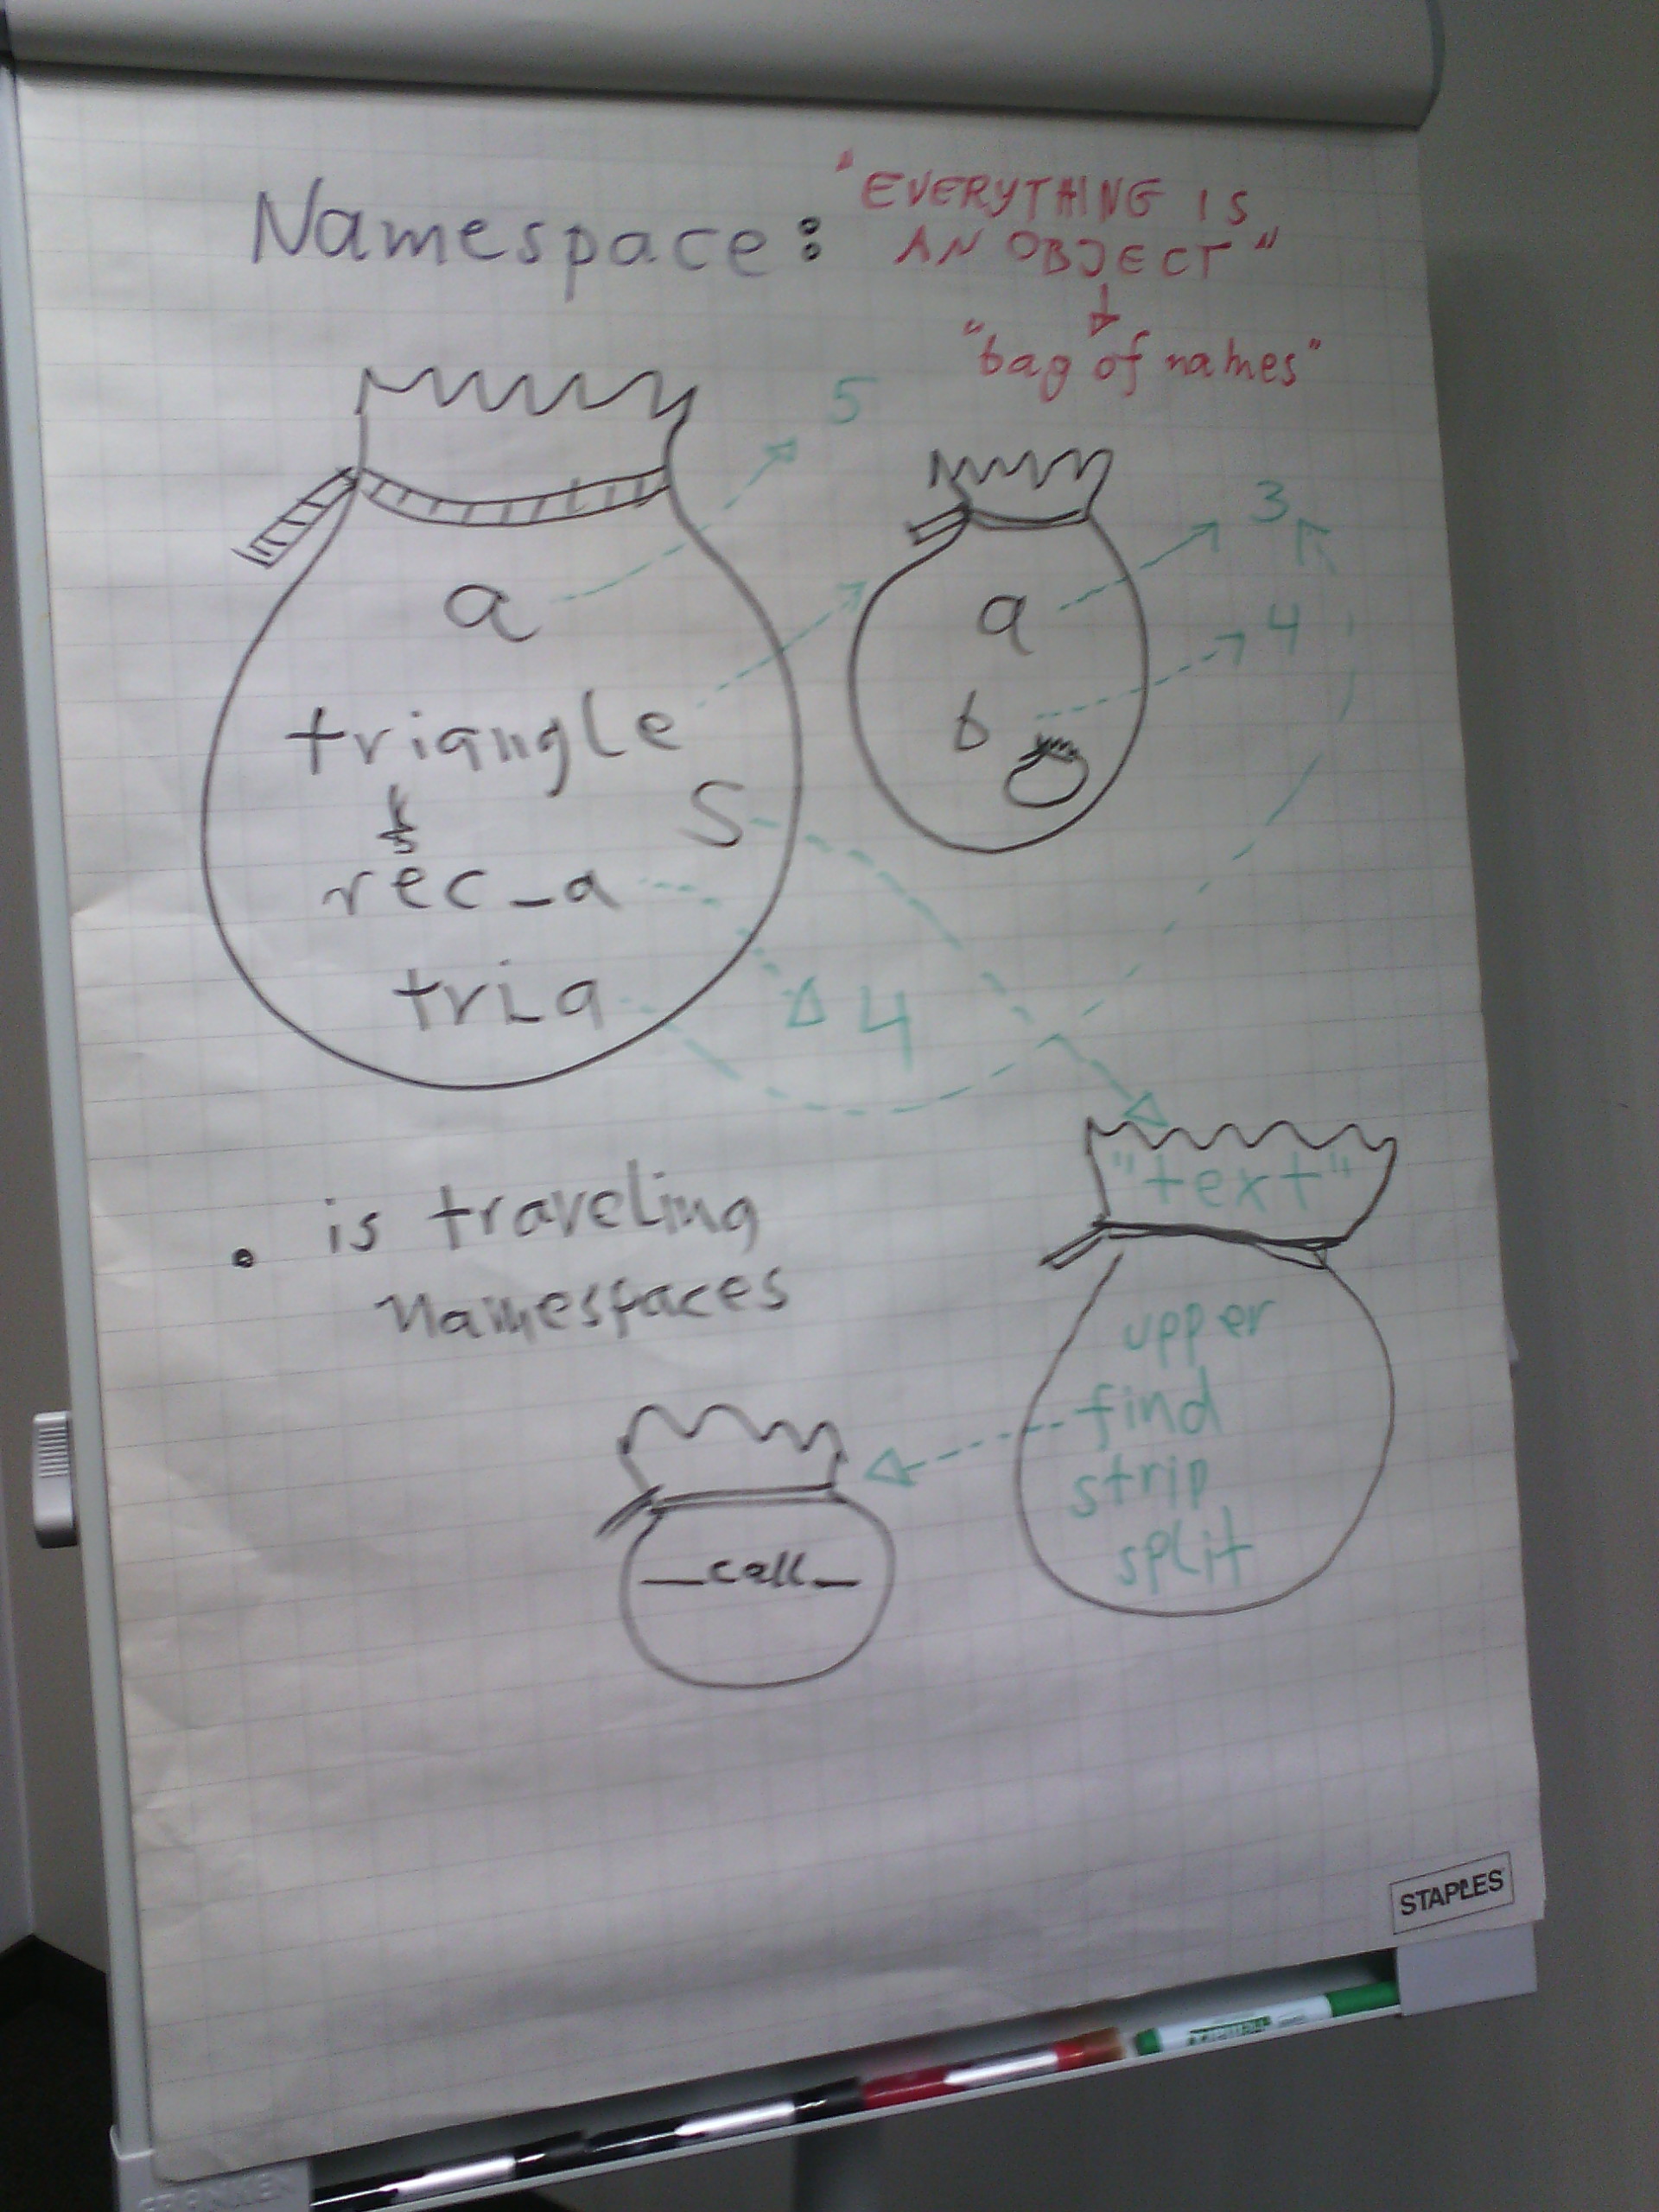 Namespace:
"EVERYTHING IS
AN OBJECT"
"bag of names"
5
a
triangle
S
rec_a
tri_a
a
b
3
4
4
. is traveling
namespaces
"text"
upper
find
strip
split
__call__
STAPLES